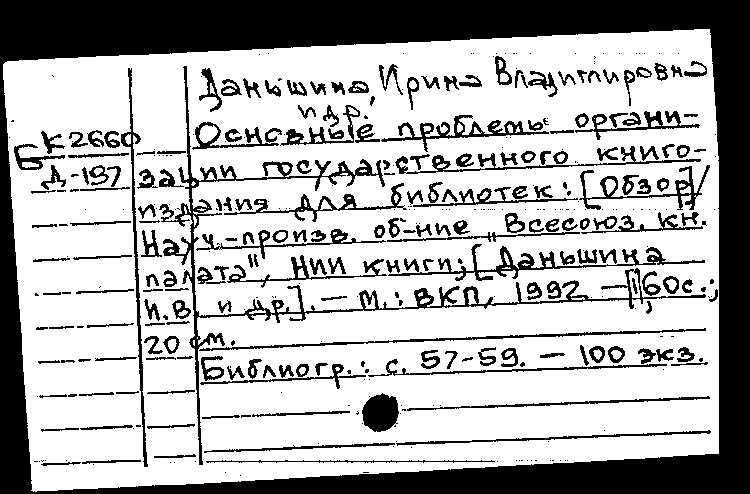 Даньшина, Ирина Владимировна
и др.
К2660 Основные проблемы органи-
Б
Д-197 зации государственного книго-
издания для библиотек: [Обзор]/
Науч.-произв. об-ние „Всесоюз. кн.
палата", НИИ книги; [Даньшина
И.В. и др.]. — М.: ВКП, 1992. — 60с.;
20 см.
Библиогр.: с. 57-59. — 100 экз.